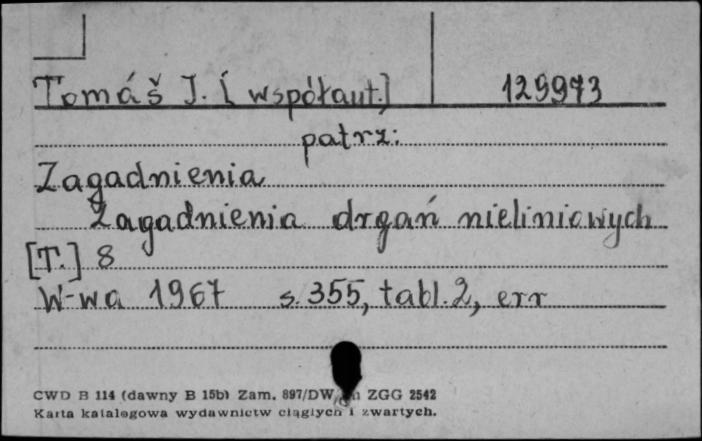 Tomáš J. [współaut.] 129973
patrz:
Zagadnienia
Zagadnienia drgań nieliniowych
[T.] 8
W-wa 1967 s. 355, tabl. 2, err
CWD B 114 (dawny B 15b) Zam. 897/DW ZGG 2542
Karta katalogowa wydawnictw ciągłych i zwartych.